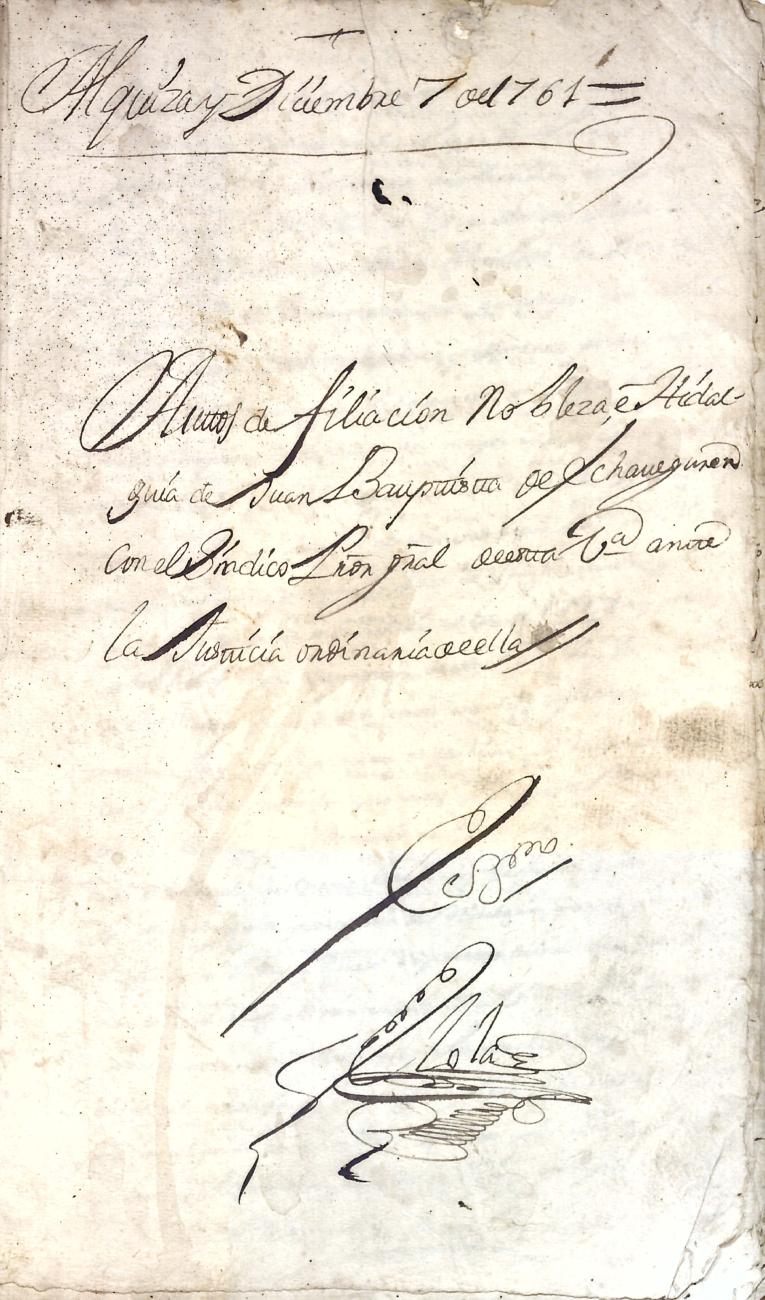 Alquiza y Diciembre 7 de 1761=
Auttos de filiación Nobleza, é Hidal-
guía de Juan Bauptistta de Echaveguren
Con el Síndico Prōn grāl de estta Vª antte
la Justicia ordinaria de ella //
Essno